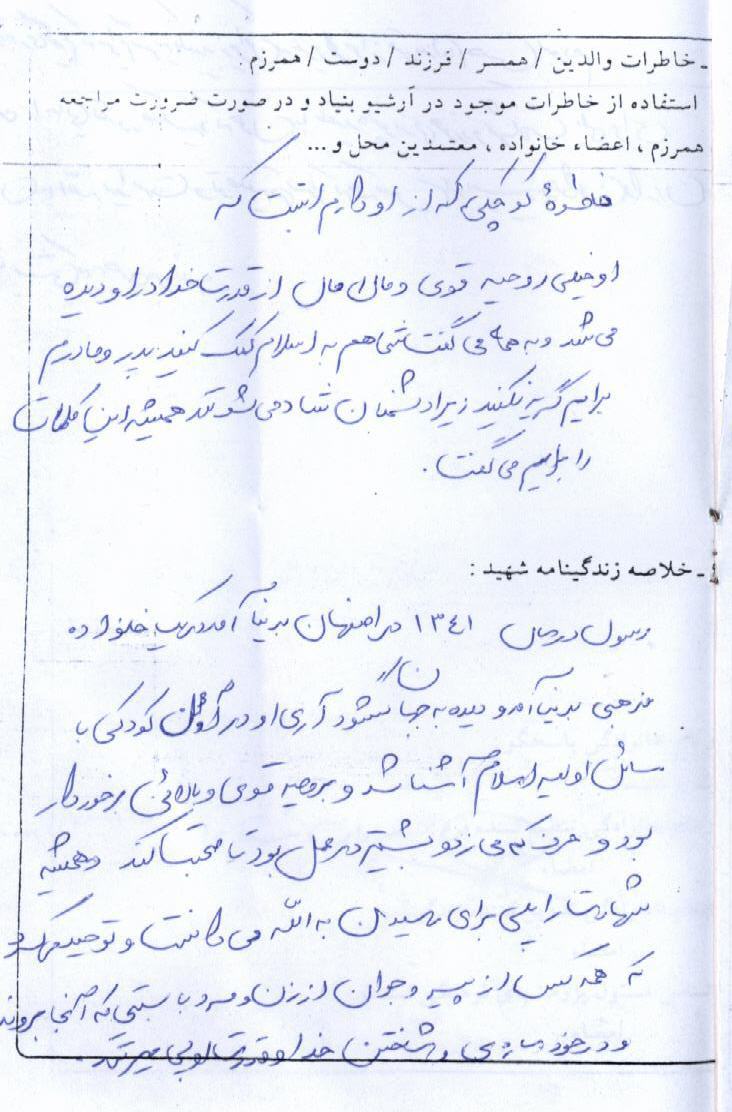 - خاطرات والدین / همسر / فرزند / دوست / همرزم
استفاده از خاطرات موجود در آرشیو بنیاد و در صورت ضرورت مراجعه
همرزم ، اعضاء خانواده ، معتمدین محل و ...
خاطرهٔ کوچکی که از او دارم اینست که
او خیلی روحیه قوی و مالامال از قدرت خدا در او دیده
می شد و به همه می گفت شما هم به اسلام کمک کنید پدر و مادرم
برایم گریه نکنید زیرا دشمنان شاد می شوند همیشه این کلمات
را برایم می گفت .
- خلاصه زندگینامه شهید :
رسول در سال ۱۳۴۱ در اصفهان بدنیا آمد در یک خانواده
مذهبی بدنیا آمد و دیده به جهان گشود آری او در اوان کودکی با
مسائل اولیه اسلام آشنا شد و بروحیه قوی و بالائی برخوردار
بود و حرف کم می زد و بیشتر در عمل بود تا صحبت کند و همیشه
شهادت را پلی برای رسیدن به الله می دانست و توصیه می کرد
که همه کس از پیر و جوان از زن و مرد بایستی که آنجا بروند
و در خود سازی و شناختن خدا و قدرت او پی ببرند .